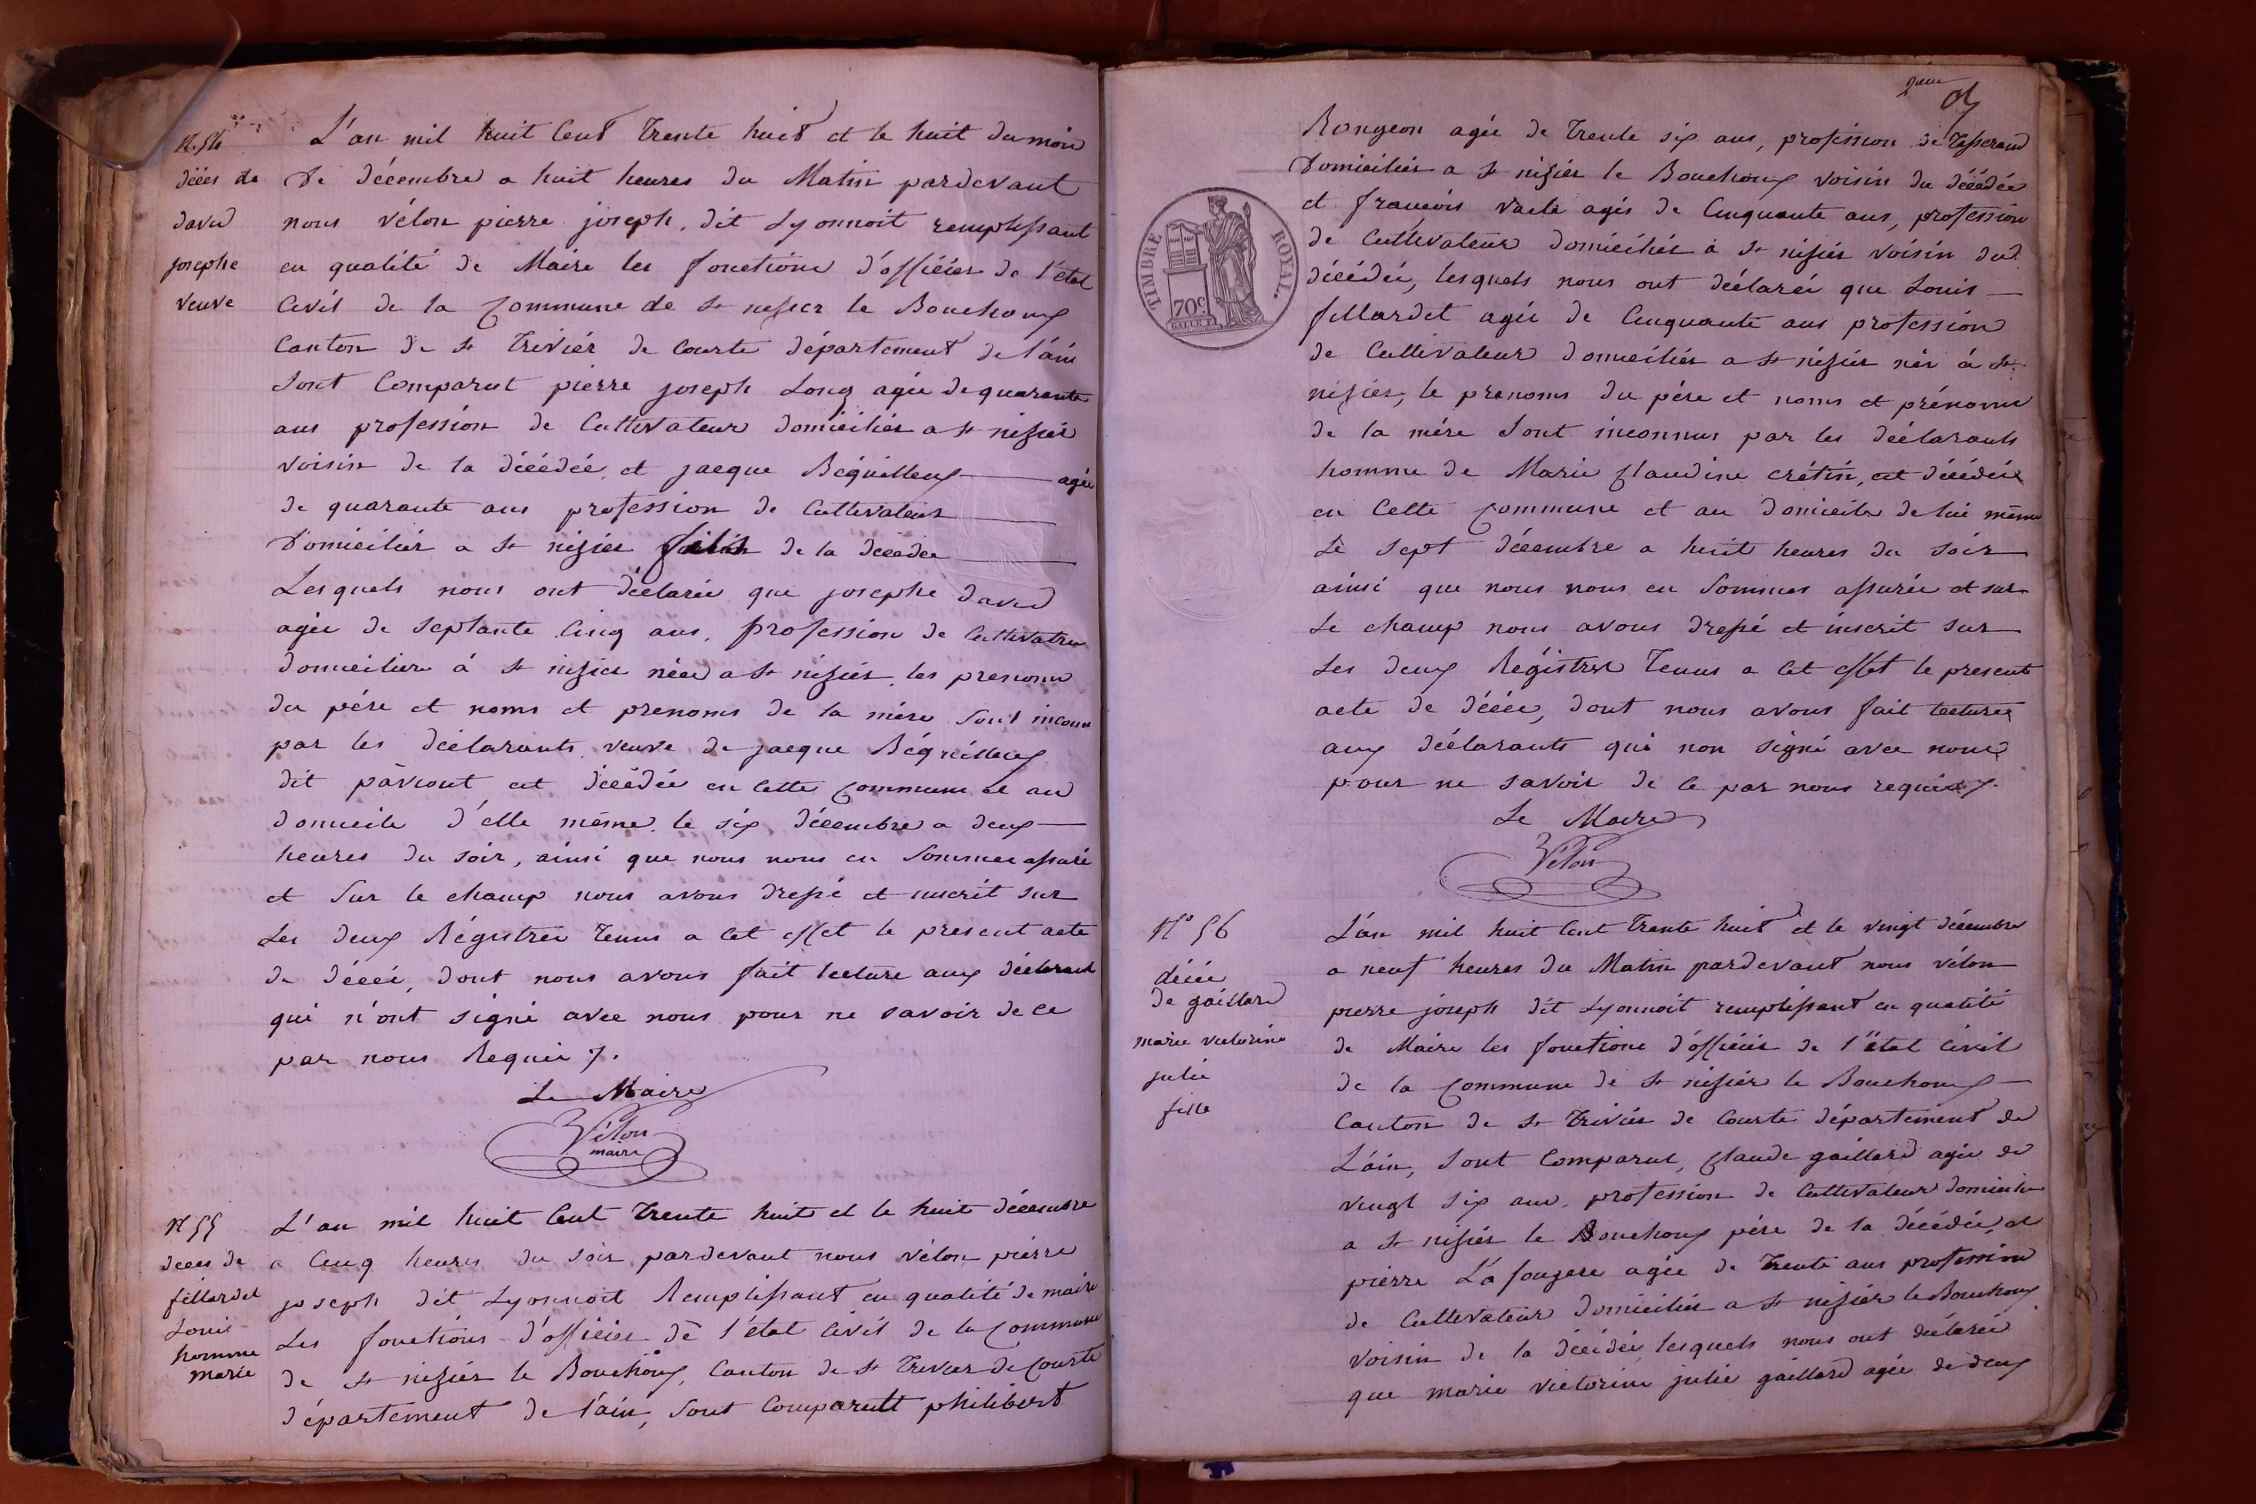 N. 54
décés de
david
josephe
veuve
L'an mil huit Cent trente huit et le huit du mois
de décembre a huit heures du Matin pardevant
nous vélon pierre joseph dit Lyonnoit remplissant
en qualité de Maire les fonctions d'officier de l'état
Civil de la Commune de St nisier le Bouchoux
Canton de St Trivier de Courte département de l'ain
Sont Comparut pierre joseph Long agée de quarante
ans profession de Cultivateur domicilier a St nisier
voisin de la décédée et jacque Béquilleux agée
de quarante ans profession de Cultivateur
domicilier a St nizier de la decedée
Lesquels nous ont déclarée que josephe david
agée de septante Cinq ans, profession de Cultivatrice
domicilier á St nizier née a St nisier les prenoms
du pére et noms et prenoms de la mére sont inconnu
par les déclarants veuve de jacque Béquilleux
dit est décédée en Cette Commune et au
domicile d'elle méme le six décembre a deux
heures du soir, ainsi que nous nous en Sommes assuré
et Sur le champ nous avons dressé et inscrit sur
Les deux Régistrer tenus a Cet effet le present acte
de décée, dont nous avons fait lecture aux déclarant
qui n'ont signé avec nous pour ne savoir de Ce
par nous Requis /.
Le Maire
Vélon
maire
N 55
decés de
fillardet
Louis
homme
marie
L'an mil huit Cent trente huit et le huit décembre
a Cinq heures du soir pardevant nous vélon pierre
joseph dit Lyonnoit Remplissant en qualité de maire
Les fonctions d'officier de l'état Civil de la Commune
de St nizier le Bouchoux, Canton de St Trivier de Courte
département de l'ain, Sont Comparutt philibert
Rongeon agée de trente six ans, profession de Tisserand
domicilier a St nizier le Bouchoux voisin du décédée
et françois vaele agés de Cinquante ans, profession
de Cultivateur domicilier à St nisier voisin du
décédée, lesquels nous ont déclarée que Louis
fillardet agée de Cinquante ans profession
de Cultivateur domicilier a St nisier née á St
nizier, le prenoms du pére et noms et prénoms
de la mére sont inconnus par les déclarants
homme de Marie Claudine crétin, est décédée
en Cette Commune et au domicile de lui même
Le sept décembre a huit heures du soir
ainsi que nous nous en Sommes assurée et sur
Le champ nous avons dressé et inscrit sur
Les deux Régistres Tenus a Cet effet le present
acte de décée, dont nous avons fait lecture
aux déclarants qui non signé avec nous
pour ne savoir de Ce par nous requis /.
Le Maire
Vélon
TIMBRE ROYAL
70 c
N° 56
décée
de gaillard
marie victorine
julie
fille
L'an mil huit Cent trente huit et le vingt décembre
a neuf heures du Matin pardevant nous vélon
pierre joseph dit Lyonnoit remplissant en qualité
de Maire les fonctions d'officier de l'état Civil
de la Commune de St nisier le Bouchoux
Canton de St Trivier de Courte département de
L'ain, Sont Comparut, Claude gaillard agée de
vingt six ans, profession de Cultivateur domicilier
a St nisier le Bouchoux pére de la décédée, et
pierre Lafougere agée de trente ans profession
de Cultivateur domicilier a St nisier le Bouchoux
voisin de la décédée, lesquels nous ont déclarée
que marie victorine julie gaillard agée de deux